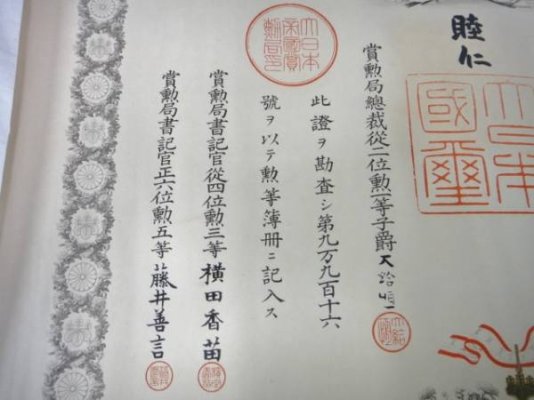 睦仁
大日本國璽
賞勲局總裁從二位勲一等子爵大給恒
大日本帝國賞勲局印
此證ヲ勘査シ第九万九百十六
號ヲ以テ勲等簿冊ニ記入ス
賞勲局書記官從四位勲三等横田香苗
賞勲局書記官正六位勲五等藤井善言